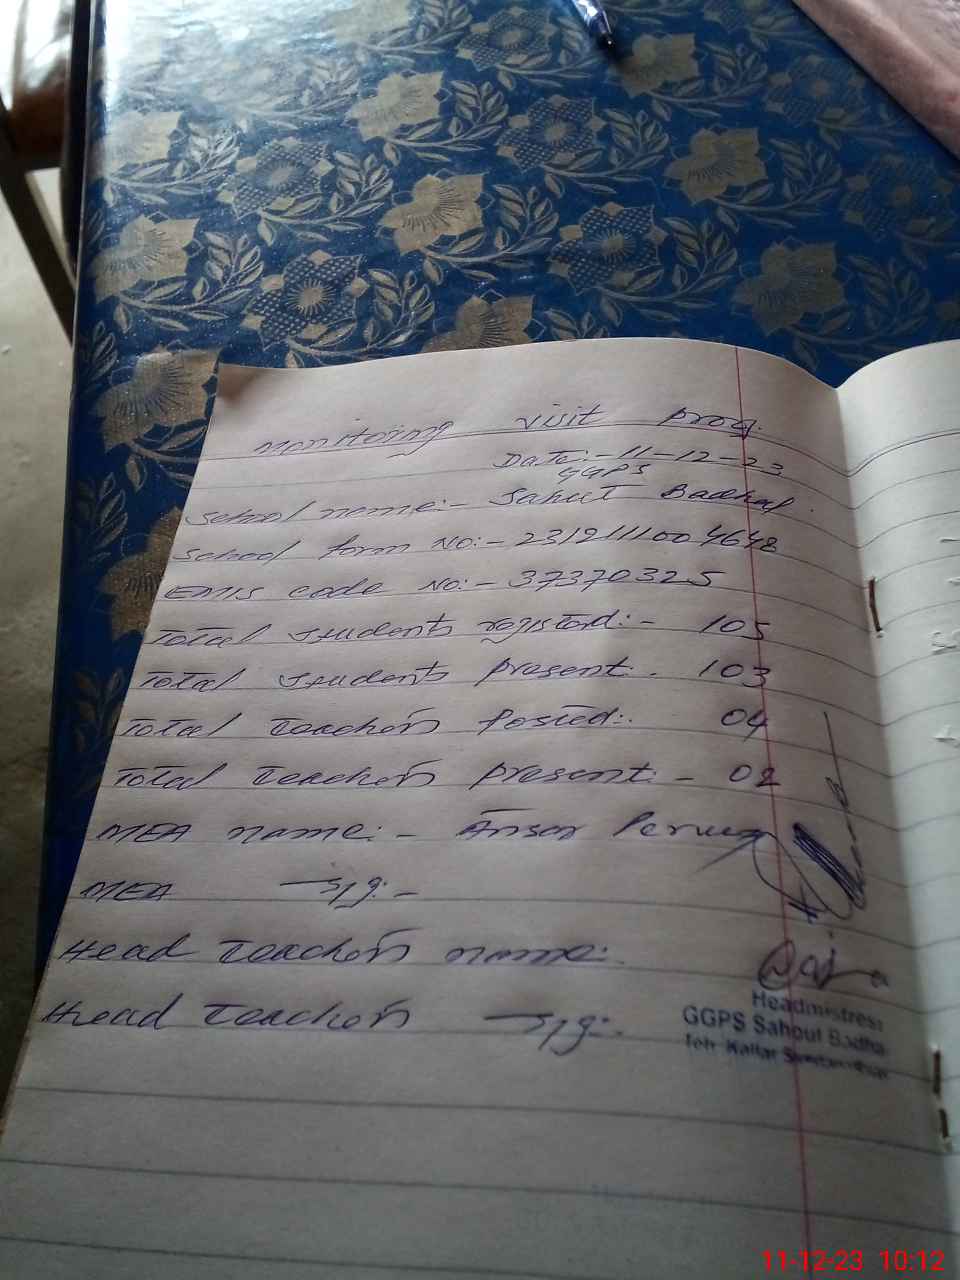 Monitoring visit prog.
Date:- 11-12-23
GGPS
School name:- Sahout Badhal
School form No:- 23121111004648
EMIS code No:- 37370325
Total students registerd:- 105
Total students present. 103
Total Teachers Posted:. 04
Total Teachers present: - 02
MEA name: - Ansar
MEA sig: -
Head Teachers name:
Head Teachers sig:.
Headmistress
GGPS Sahout Badha
Teh: Kallar
11-12-23 10:12